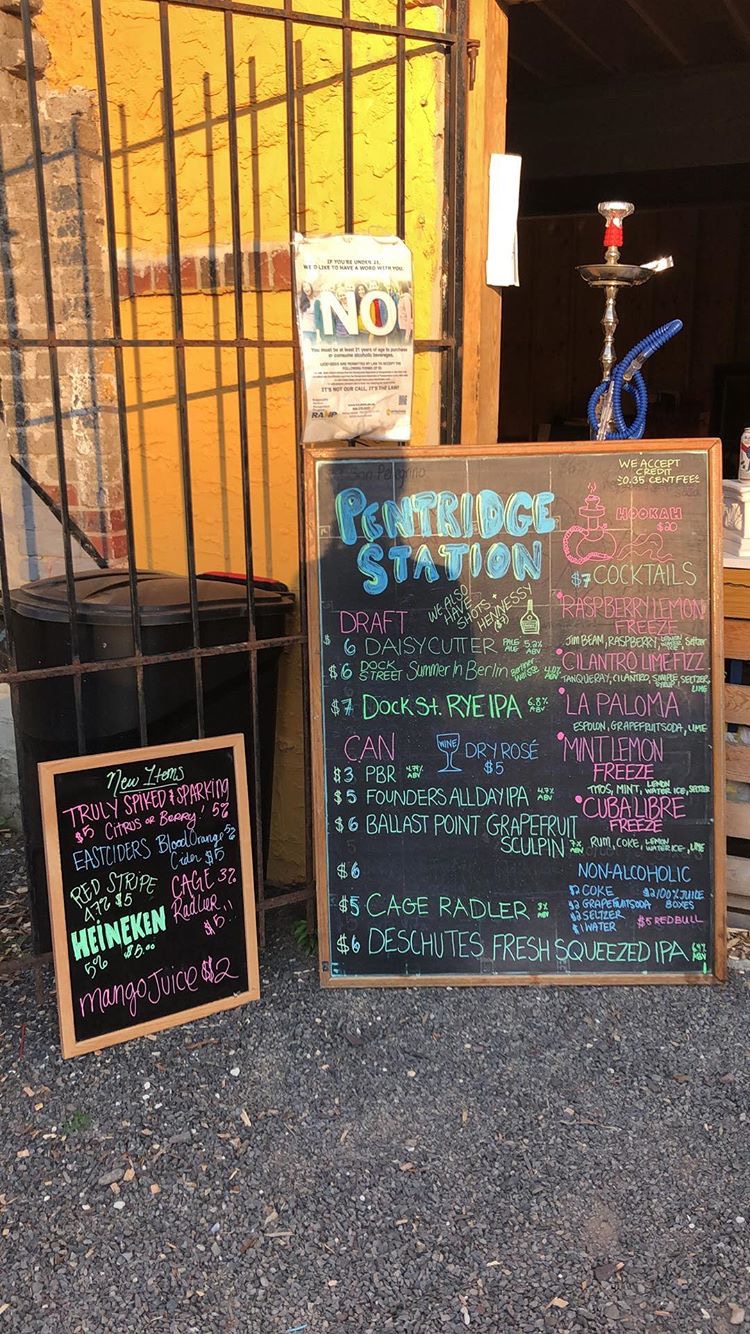 IF YOU'RE UNDER 21,
WE'D LIKE TO HAVE A WORD WITH YOU.
NO
You must be at least 21 years of age to purchase
or consume alcoholic beverages.
IT'S NOT OUR CALL, IT'S THE LAW!
RAMP
San Pellegrino
WE ACCEPT
CREDIT
0.35 CENT FEE
PENTRIDGE
STATION
HOOKAH
$20
WE ALSO
HAVE
SHOTS +
HENNESSY
DRAFT
$6 DAISYCUTTER PALE ALE 5.2% ABV
$6 DOCK STREET Summer In Berlin
$7 Dock St. RYE IPA 6.8% ABV
CAN
WINE DRY ROSÉ
$5
$3 PBR 4.74% ABV
$5 FOUNDERS ALL DAY IPA 4.7% ABV
$6 BALLAST POINT GRAPEFRUIT
SCULPIN 7% ABV
$6
$5 CAGE RADLER 3% ABV
$6 DESCHUTES FRESH SQUEEZED IPA
$7 COCKTAILS
•RASPBERRY LEMON
FREEZE
JIM BEAM, RASPBERRY, Seltzer
•CILANTRO LIME FIZZ
TANQUERAY, CILANTRO, SIMPLE, SELTZER,
LIME
•LA PALOMA
ESPOLON, GRAPEFRUIT SODA, LIME
•MINT LEMON
FREEZE
TITOS, MINT, LEMON WATER ICE, SELTZER
•CUBA LIBRE
FREEZE
RUM, COKE, LEMON WATER ICE, LIME
NON-ALCOHOLIC
$2 COKE
$2 GRAPEFRUIT SODA
$2 SELTZER
$1 WATER
$2 100% JUICE
BOXES
$5 REDBULL
New Items
TRULY SPIKED & SPARKING
$5 CITRUS OR BERRY! 5%
EASTCIDERS Blood Orange 5%
Cider $5
RED STRIPE
4.7% $5
CAGE 3%
Radler!!
$5
HEINEKEN
5% $5.00
mango Juice $2